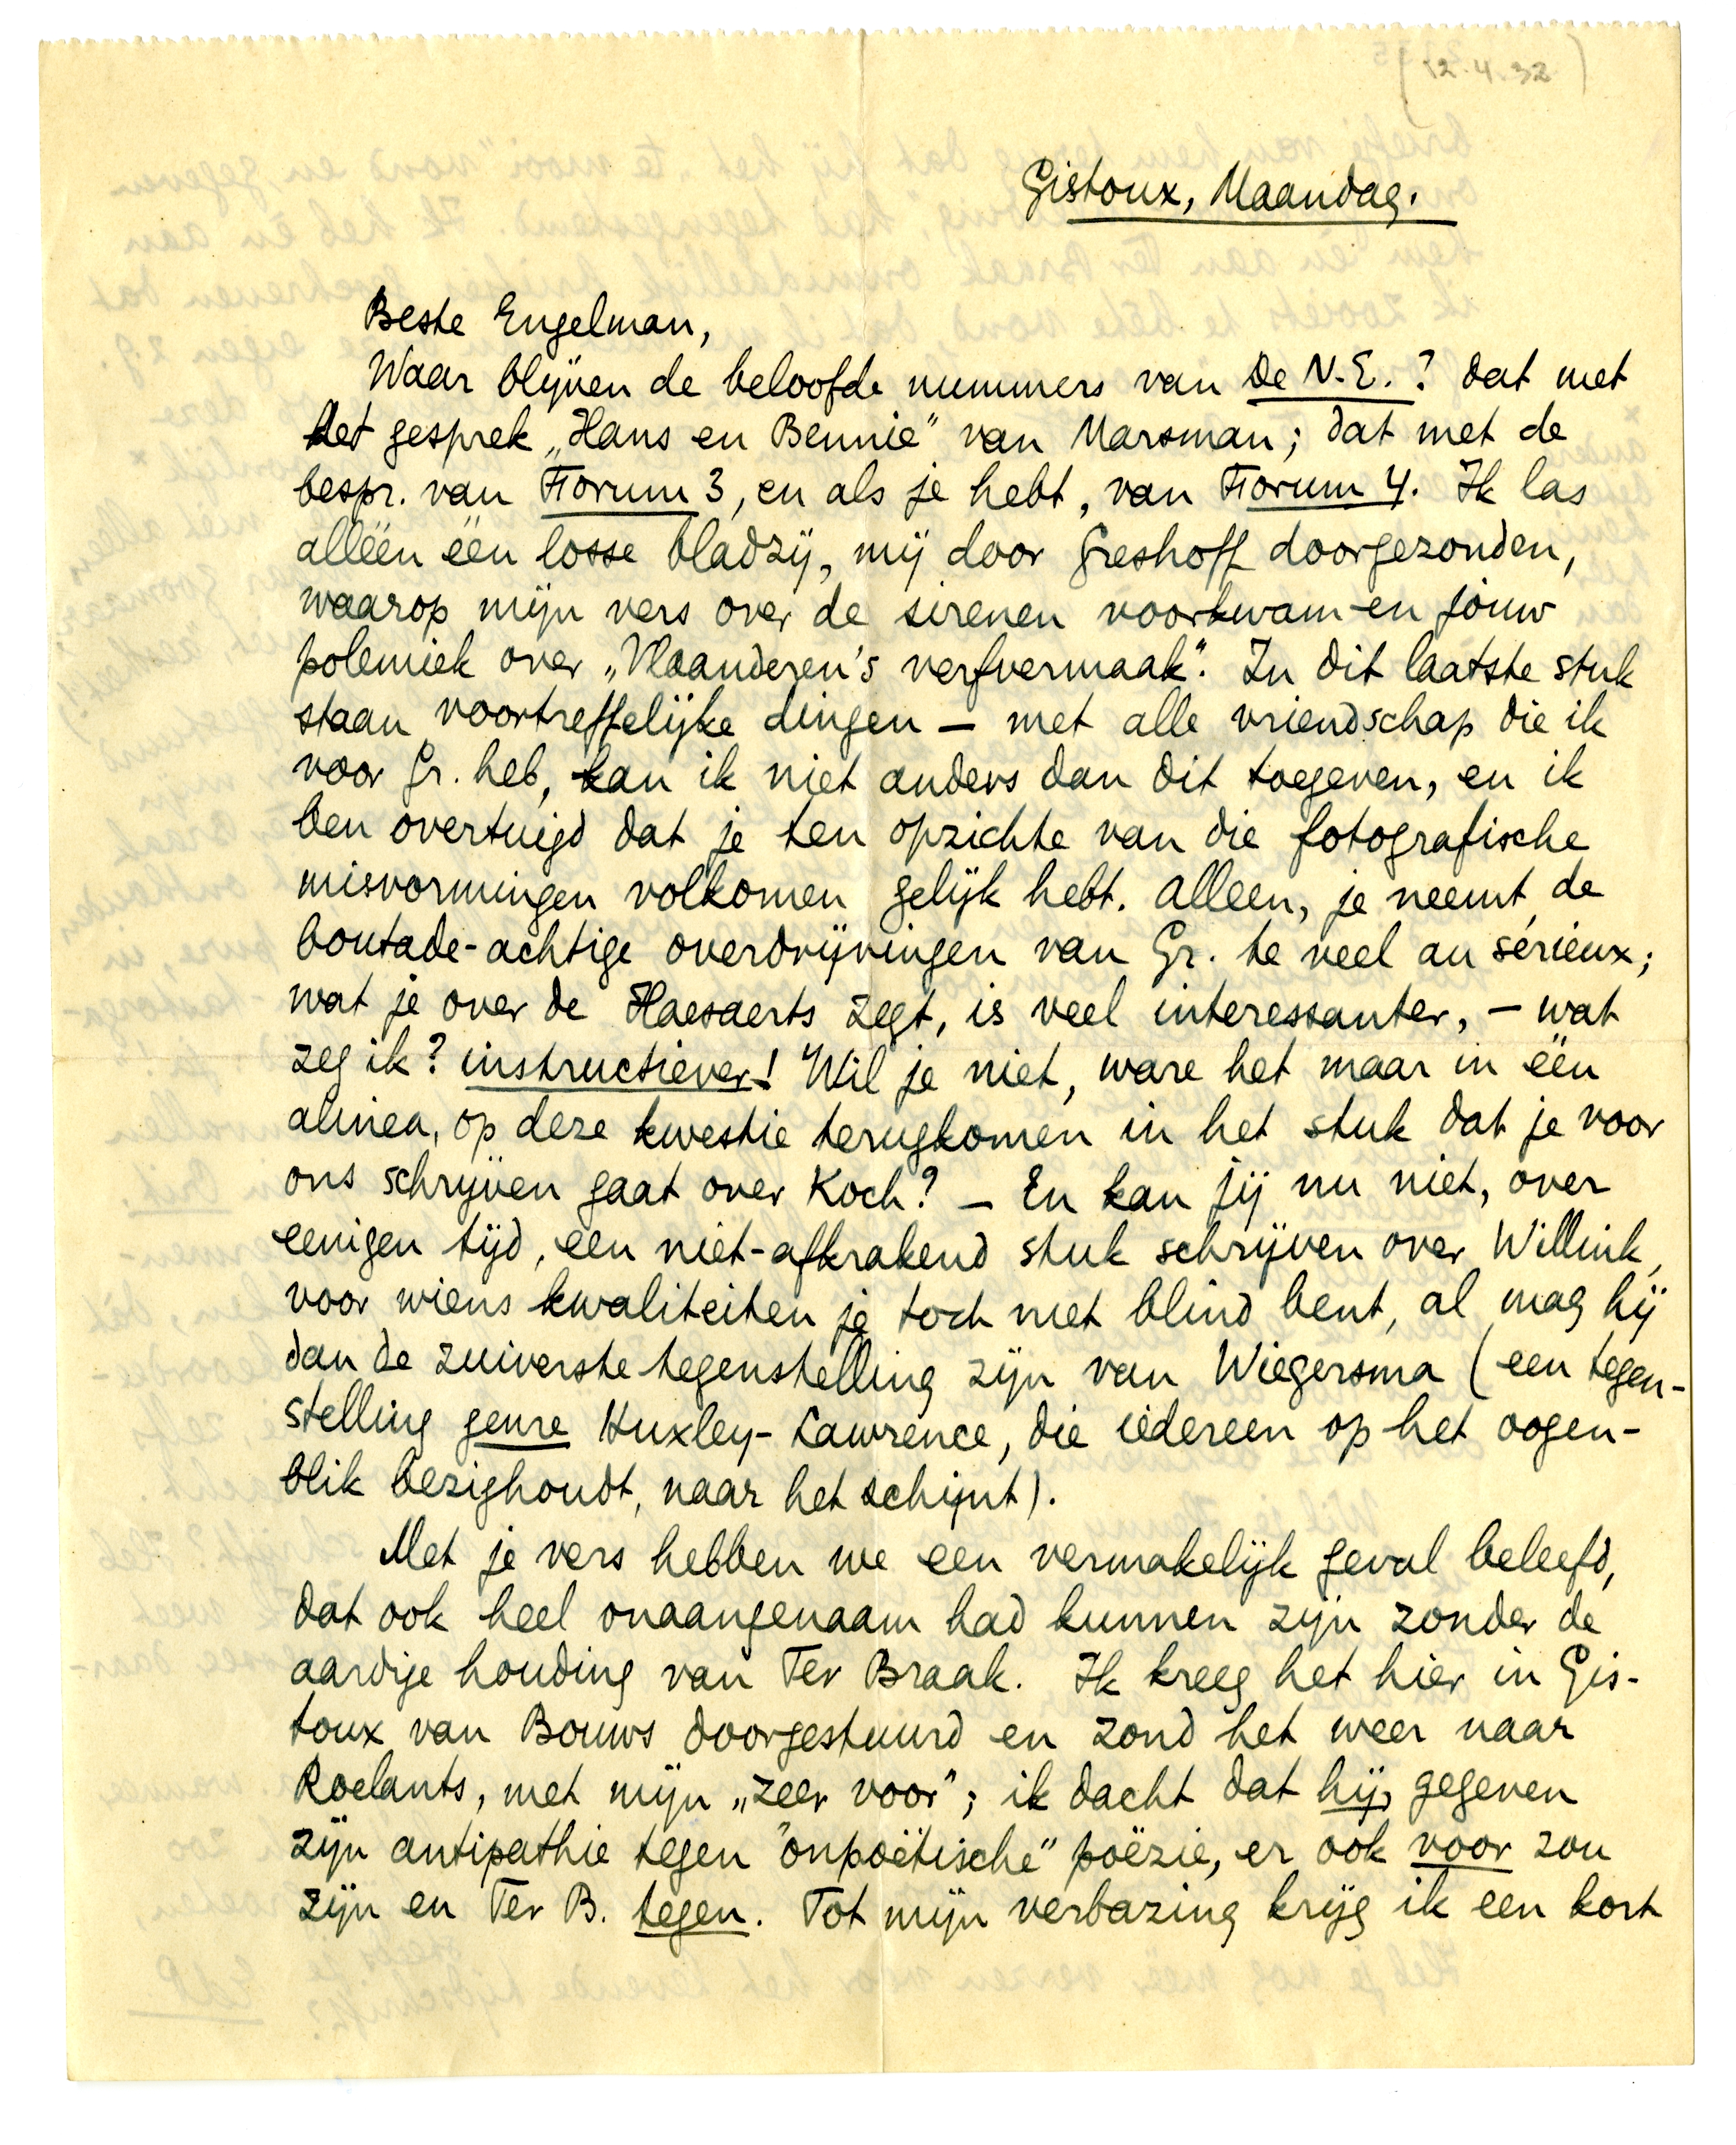 12.4.32
Gistoux, Maandag.
Beste Engelman,
Waar blijven de beloofde nummers van De N.E.? dat met
het gesprek „Hans en Bennie” van Marsman; dat met de
bespr. van Forum 3, en als je hebt, van Forum 4. Ik las
alléén één losse bladzij, mij door Greshoff doorgezonden,
waarop mijn vers over de sirenen voorkwam en jouw
polemiek over „Vlaanderen's verfvermaak”. In dit laatste stuk
staan voortreffelijke dingen — met alle vriendschap die ik
voor Gr. heb, kan ik niet anders dan dit toegeven, en ik
ben overtuigd dat je ten opzichte van die fotografische
misvormingen volkomen gelijk hebt. Alleen, je neemt de
boutade-achtige overdrijvingen van Gr. te veel au sérieux;
wat je over de Haesaerts zegt, is veel interessanter, — wat
zeg ik? instructiever! Wil je niet, ware het maar in één
alinea, op deze kwestie terugkomen in het stuk dat je voor
ons schrijven gaat over Koch? — En kan jij nu niet, over
eenigen tijd, een niet-afkrakend stuk schrijven over Willink,
voor wiens kwaliteiten je toch niet blind bent, al mag hij
dan de zuiverste tegenstelling zijn van Wiegersma (een tegen-
stelling genre Huxley-Lawrence, die iedereen op het oogen-
blik bezighoudt, naar het schijnt).
Met je vers hebben we een vermakelijk geval beleefd,
dat ook heel onaangenaam had kunnen zijn zonder de
aardige houding van Ter Braak. Ik kreeg het hier in Gis-
toux van Bouws doorgestuurd en zond het weer naar
Roelants, met mijn „zeer voor”; ik dacht dat hij, gegeven
zijn antipathie tegen "onpoëtische" poëzie, er ook voor zou
zijn en Ter B. tegen. Tot mijn verbazing krijg ik een kort